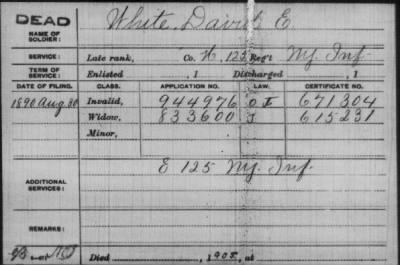 DEAD
NAME OF SOLDIER: White, David E.
SERVICE: Late rank, Co. H, 125 Reg't N.Y. Inf.
TERM OF SERVICE: Enlisted , 1 Discharged , 1
DATE OF FILING. CLASS. APPLICATION NO. LAW. CERTIFICATE NO.
1890 Aug. 30 Invalid, 944976 671304
Widow, 833600 615231
Minor,
ADDITIONAL SERVICES: E 125 N.Y. Inf.
REMARKS:
Died , 1905, at